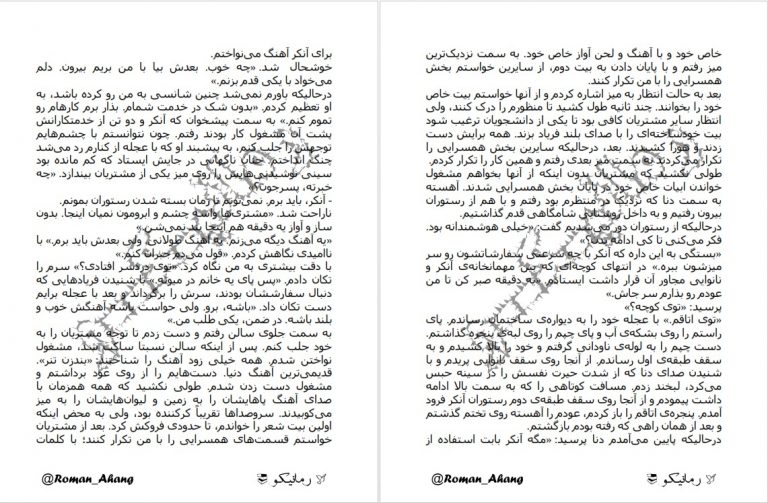 برای آنکر آهنگ می‌نواختم.
خوشحال شد. «چه خوب. بعدش بیا با من بریم بیرون. دلم
می‌خواد با یکی قدم بزنم.»
درحالیکه باورم نمی‌شد چنین شانسی به من رو کرده باشد، به
او تعظیم کردم. «بدون شک در خدمت شمام. بذار برم کارهام رو
تموم کنم.» به سمت پیشخوان که آنکر و دو تن از خدمتکارانش
پشت آن مشغول کار بودند رفتم. چون نتوانستم با چشم‌هایم
توجهش را جلب کنم، به پیشبند او که با عجله از کنارم رد می‌شد
چنگ انداختم. چنان ناگهانی در جایش ایستاد که کم مانده بود
سینی نوشیدنی‌هایش را روی میز یکی از مشتریان بیندازد. «چه
خبرته، پسرجون؟»
- آنکر، باید برم. نمی‌تونم تا زمان بسته شدن رستوران بمونم.
ناراحت شد. «مشتری‌ها واسه چشم و ابرومون نمیان اینجا. بدون
ساز و آواز یه دقیقه هم اینجا بند نمی‌شن.»
«یه آهنگ دیگه می‌زنم. یه آهنگ طولانی. ولی بعدش باید برم.» با
ناامیدی نگاهش کردم. «قول می‌دم جبران کنم.»
با دقت بیشتری به من نگاه کرد. «توی دردسر افتادی؟» سرم را
تکان دادم. «پس پای یه خانم در میونه.» با شنیدن فریادهایی که
دنبال سفارششان بودند، سرش را برگرداند و بعد با عجله برایم
دست تکان داد. «باشه، برو. ولی حواست باشه آهنگش خوب و
بلند باشه. در ضمن، یکی طلب من.»
به سمت جلوی سالن رفتم و دست زدم تا توجه مشتریان را به
خود جلب کنم. پس از اینکه سالن نسبتا ساکت شد، مشغول
نواختن شدم. همه خیلی زود آهنگ را شناختند: «بندزن تنر».
قدیمی‌ترین آهنگ دنیا. دست‌هایم را از روی عود برداشتم و
مشغول دست زدن شدم. طولی نکشید که همه همزمان با
صدای آهنگ پاهایشان را به زمین و لیوان‌هایشان را به میز
می‌کوبیدند. سروصداها تقریباً کرکننده بود، ولی به محض اینکه
اولین بیت شعر را خواندم، تا حدودی فروکش کرد. بعد از مشتریان
خواستم قسمت‌های همسرایی را با من تکرار کنند؛ با کلمات
@Roman_Ahang
رمانیکو
خاص خود و با آهنگ و لحن آواز خاص خود. به سمت نزدیک‌ترین
میز رفتم و با پایان دادن به بیت دوم، از سایرین خواستم بخش
همسرایی را با من تکرار کنند.
بعد به حالت انتظار به میز اشاره کردم و از آنها خواستم بیت خاص
خود را بخوانند. چند ثانیه طول کشید تا منظورم را درک کنند، ولی
انتظار سایر مشتریان کافی بود تا یکی از دانشجویان ترغیب شود
بیت خودساخته‌ای را با صدای بلند فریاد بزند. همه برایش دست
زدند و هورا کشیدند. بعد، درحالیکه سایرین بخش همسرایی را
تکرار می‌کردند، به سمت میز بعدی رفتم و همین کار را تکرار کردم.
طولی نکشید که مشتریان بدون اینکه از آنها بخواهم مشغول
خواندن ابیات خاص خود در پایان بخش همسرایی شدند. آهسته
به سمت دنا که نزدیک در منتظرم بود رفتم و با هم از رستوران
بیرون رفتیم و به داخل روشنایی شامگاهی قدم گذاشتیم.
درحالیکه از رستوران دور می‌شدیم گفت: «خیلی هوشمندانه بود.
فکر می‌کنی تا کی ادامه بدن؟»
«بستگی به این داره که آنکر با چه سرعتی سفارشاتشون رو سر
میزشون ببره.» در انتهای کوچه‌ای که بین مهمانخانه‌ی آنکر و
نانوایی مجاور آن قرار داشت ایستادم. «یه دقیقه صبر کن تا من
عودم رو بذارم سر جاش.»
پرسید: «توی کوچه؟»
«توی اتاقم.» با عجله خود را به دیواره‌ی ساختمان رساندم. پای
راستم را روی بشکه‌ی آب و پای چپم را روی لبه‌ی پنجره گذاشتم.
دست چپم را به لوله‌ی ناودانی گرفتم و خود را بالا کشیدم و به
سقف طبقه‌ی اول رساندم. از آنجا روی سقف نانوایی پریدم و با
شنیدن صدای دنا که از شدت حیرت نفسش را در سینه حبس
می‌کرد، لبخند زدم. مسافت کوتاهی را که به سمت بالا ادامه
داشت پیمودم و از آنجا روی سقف طبقه‌ی دوم رستوران آنکر فرود
آمدم. پنجره‌ی اتاقم را باز کردم، عودم را آهسته روی تختم گذشتم
و بعد از همان راهی که رفته بودم بازگشتم.
درحالیکه پایین می‌آمدم دنا پرسید: «مگه آنکر بابت استفاده از
@Roman_Ahang
رمانیکو